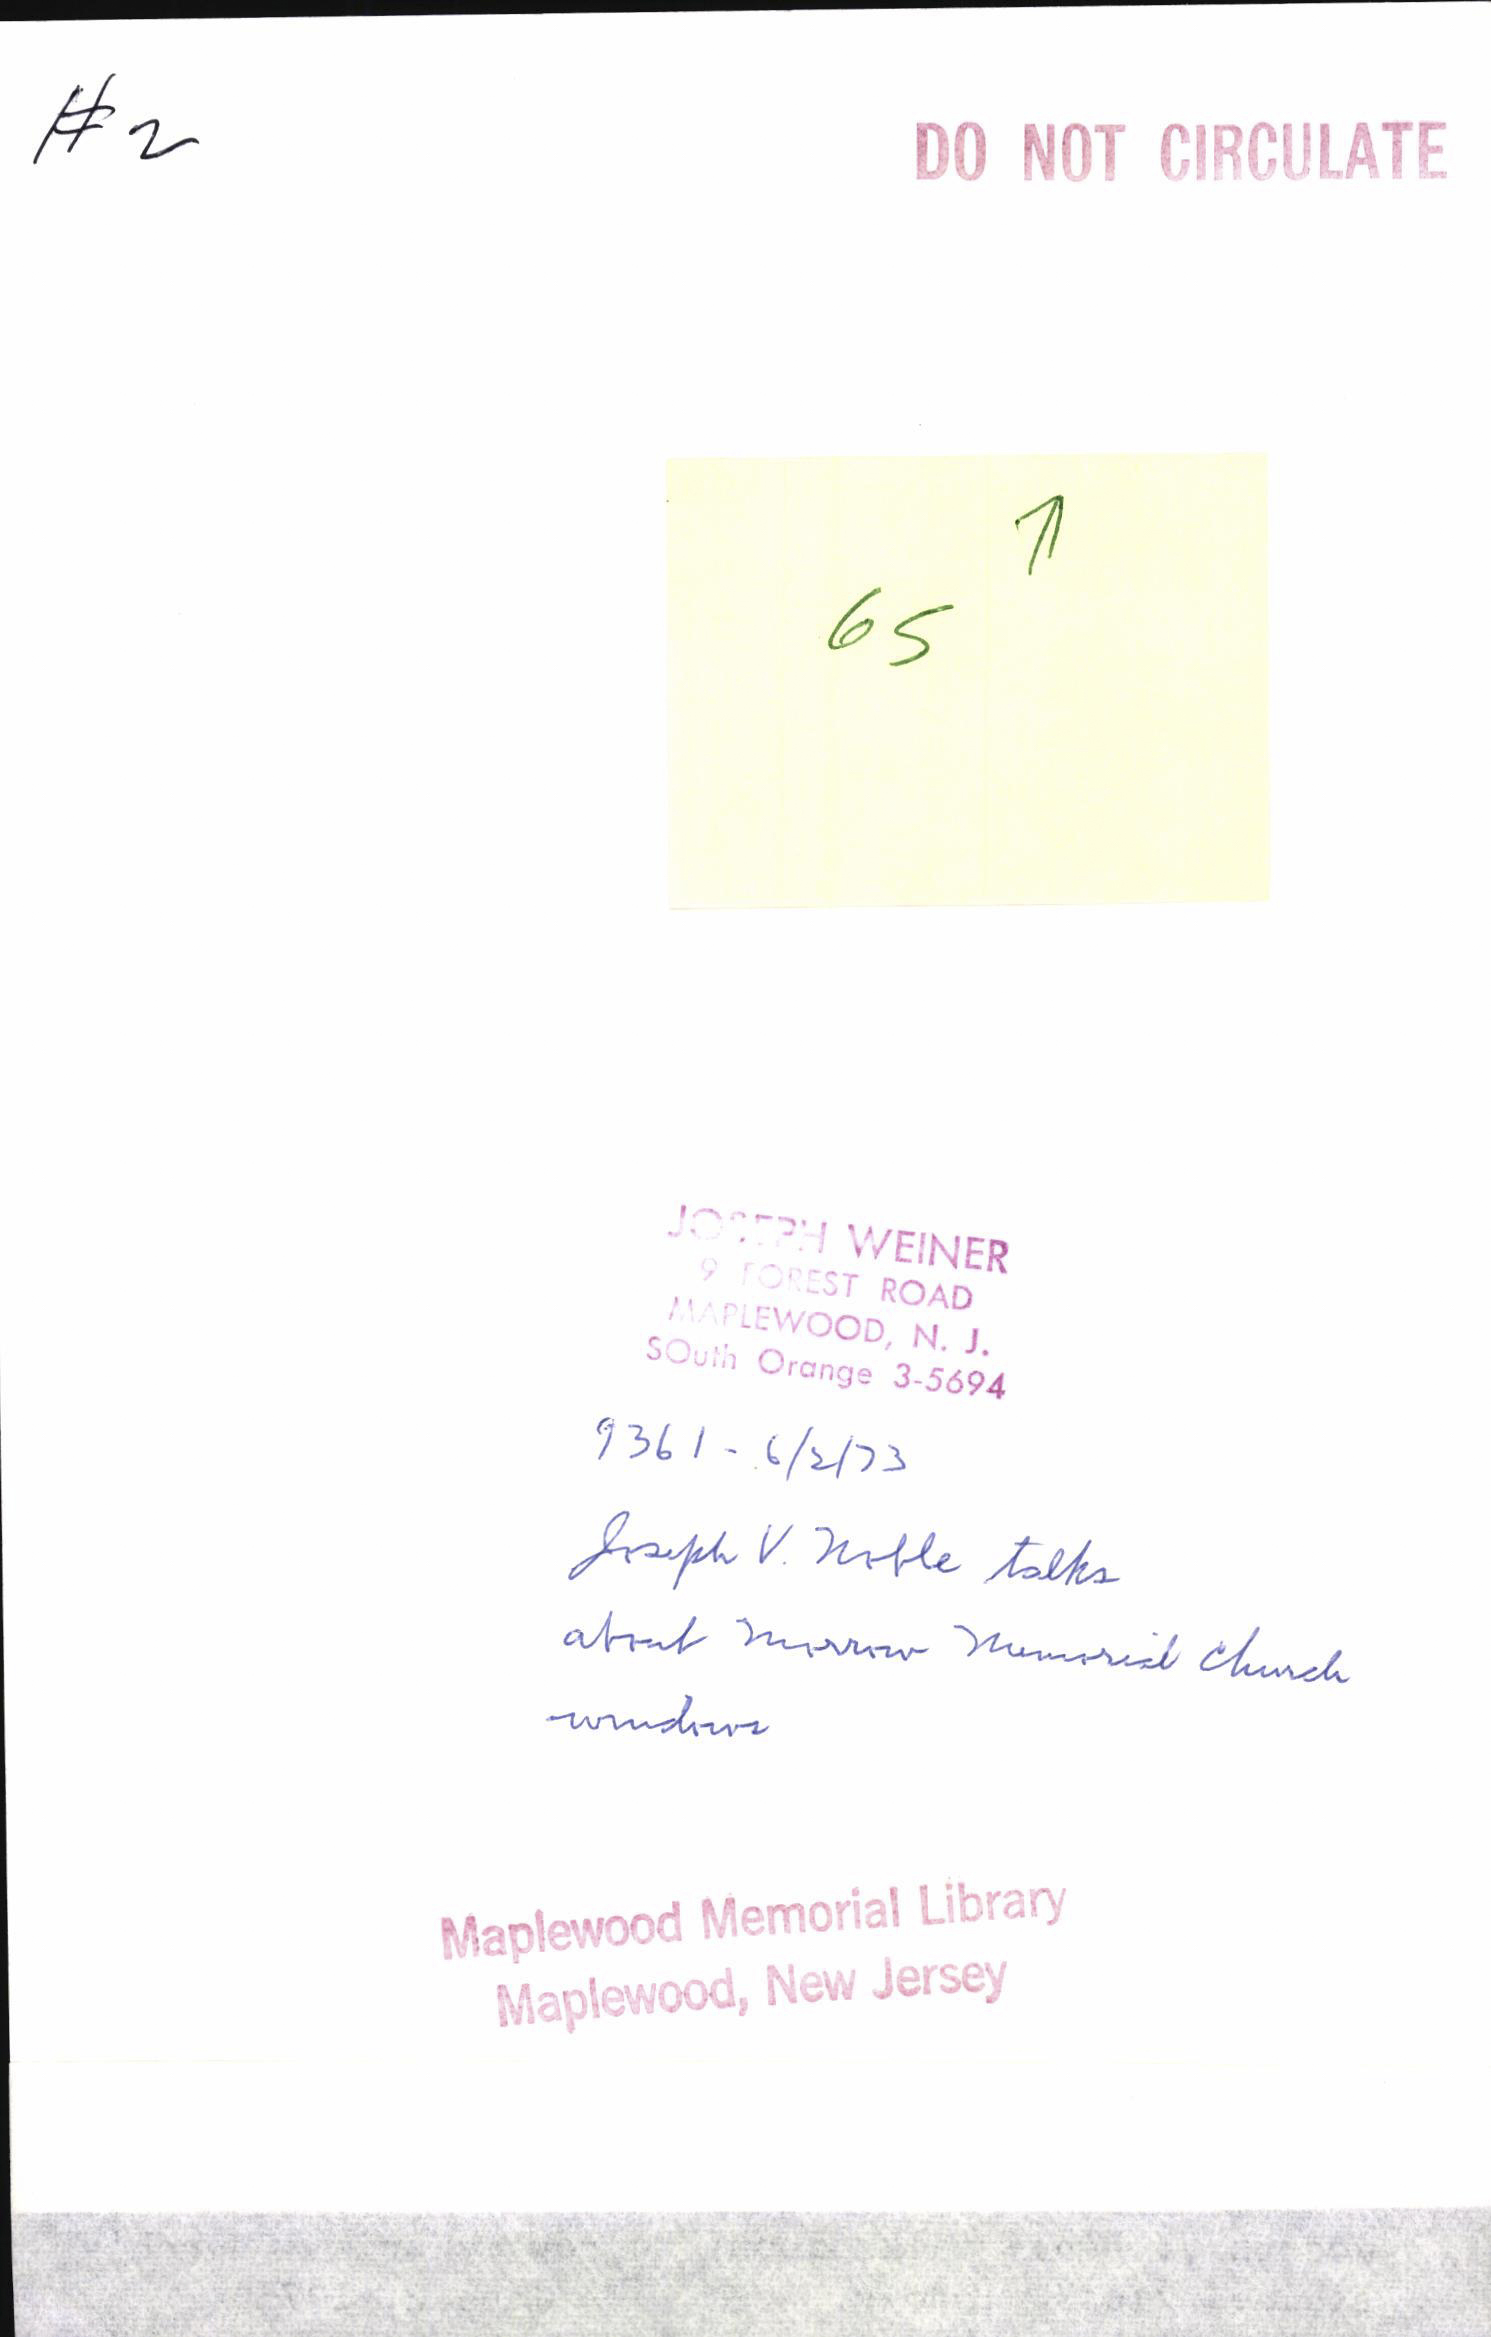 #2
DO NOT CIRCULATE
65
JOSEPH WEINER
9 FOREST ROAD
MAPLEWOOD, N. J.
SOuth Orange 3-5694
9361 - 6/2/73
Joseph V. Noble talks
about Morrow Memorial Church
windows
Maplewood Memorial Library
Maplewood, New Jersey